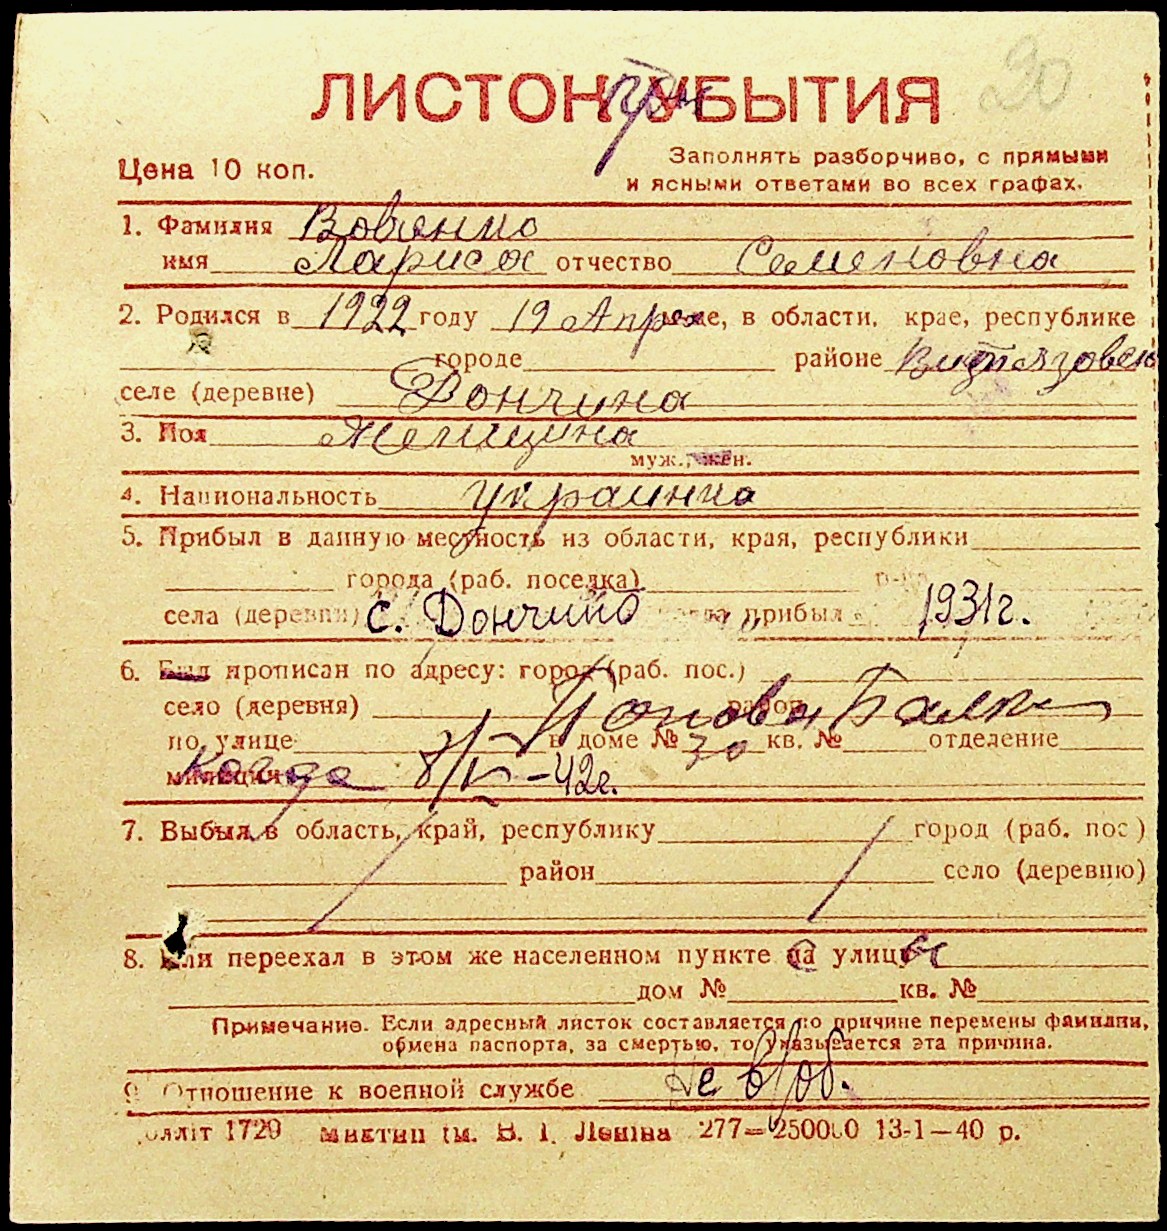 ЛИСТОК УБЫТИЯ
при
30
Цена 10 коп.
Заполнять разборчиво, с прямыми
и ясными ответами во всех графах.
1. Фамилия Вовченко
имя Лариса отчество Семеновна
2. Родился в 1922 году 19 Апреле, в области, крае, республике
городе районе
селе (деревне) Дончина
3. Пол Женщина
муж., жен.
4. Национальность украинка
5. Прибыл в данную местность из области, края, республики
города (раб. поселка) р-на
села (деревни) с. Дончино когда прибыл 1931г.
6. Был прописан по адресу: город (раб. пос.)
село (деревня) Попова Балка район
по улице в доме № 30 кв. № отделение
милиции Когда 8/IV-42г.
7. Выбыл в область, край, республику город (раб. пос.)
район село (деревню)
8. Или переехал в этом же населенном пункте на улицу
дом № кв. №
Примечание. Если адресный листок составляется по причине перемены фамилии,
обмена паспорта, за смертью, то указывается эта причина.
9. Отношение к военной службе Не в/об.
1720 ім. В. І. Леніна 277—250000 13-1—40 р.